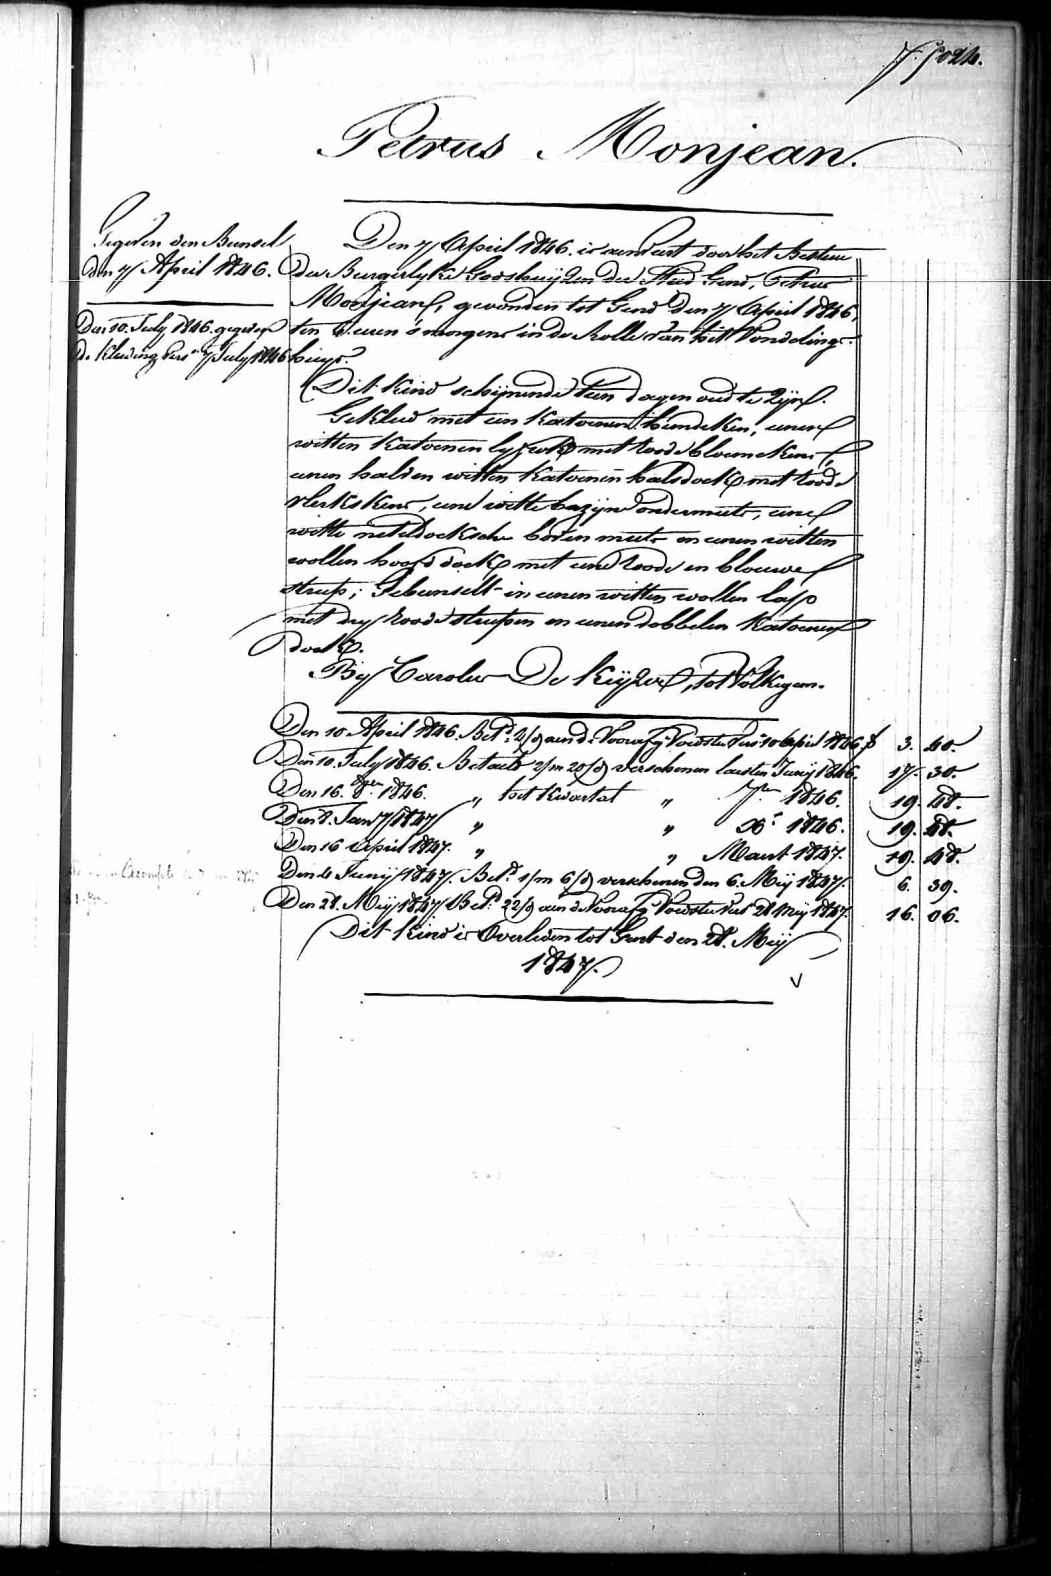 Petrus Monjean.
Gegeven den Bunsel
den 7 April 1846.
Den 10. July 1846. gegeven
de Kleeding 7 July 1846
Den 7 April 1846. is aenveert door het Bestuur
der Burgerlyke Godshuijzen der Stad Gend, Petrus
Monjean, gevonden tot Gend den 7 April 1846,
ten uren 's morgens in de Rolle van het Vondeling-
huijs.
Dit kind schijnende tien dagen oud te zijn.
Gekleed met een katoenen hemdeken, eenen
witten katoenen lyfrok met roode bloemekens,
eenen halven witten katoenen halsdoek met roode
vlerkskens, eene witte bazijne ondermuts, eene
witte neteldoeksche bovenmuts en eenen witten
wollen hoofddoek met eene roode en blauwe
streep; Gebunselt in eenen witten wollen lap
met dry roode streepen en eenen dobbelen katoenen
doek.
Bij Carolus De Keijzer, tot Volkegem.
Den 10. April 1846. Bet.d aen de Voedster 10 April 1846 f 3. 40.
Den 10. July 1846. Betaelt 2/m 20/d verschenen laesten Junij 1846. 17. 30.
Den 16. 8ber 1846. „ het kwartal „ 7ber 1846. 19. 48.
Den 8. Jan 1847 „ „ Xr 1846. 19. 48.
Den 16 April 1847. „ „ Maert 1847. 19. 48.
Den 4 Junij 1847. Bet.d 1/m 6/d verschenen den 6. Meij 1847. 6. 39.
Den 28. Meij 1847 Bet.d 22/d aen de Voedster 28 Meij 1847. 16. 06.
Dit kind is Overleden tot Gent den 28. Meij
1847.